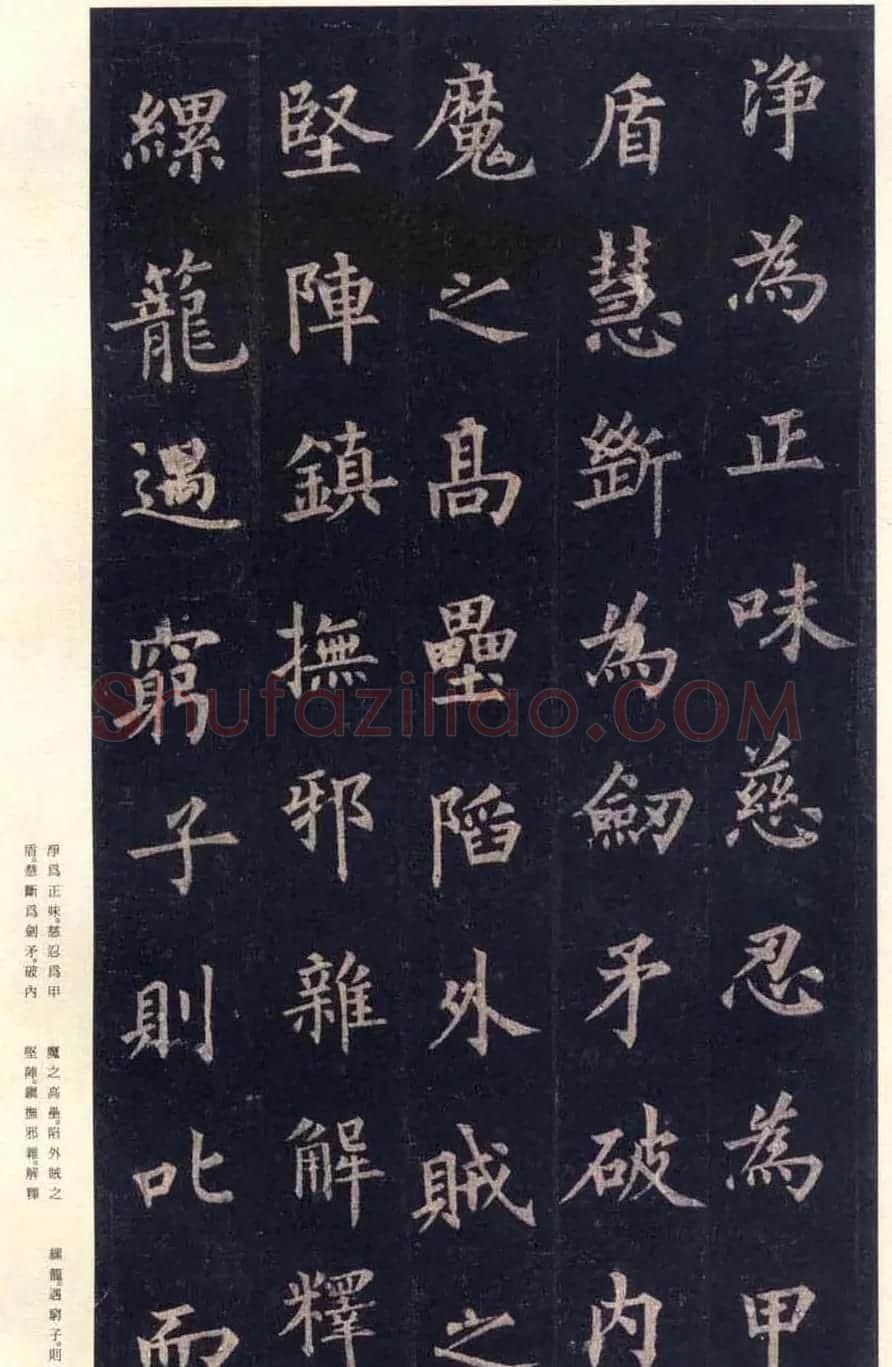 淨為正味慈忍為甲
盾慧斷為劒矛破内
魔之高壘陷外賊之
堅陣鎮撫邪雜解釋
縲籠遇窮子則叱而
淨爲正味。慈忍爲甲
盾。慧斷爲劍矛。破内
魔之高壘。陷外賊之
堅陣。鎭撫邪雜。解釋
縲籠。遇窮子。則
Shufaziliao.COM